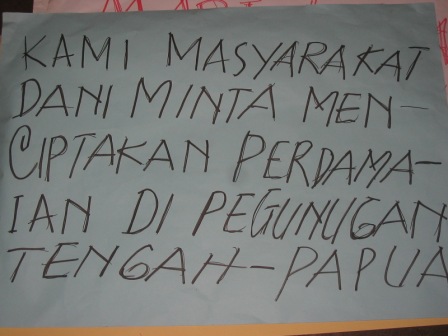 KAMI MASYARAKAT
DANI MINTA MEN-
CIPTAKAN PERDAMA-
IAN DI PEGUNUGAN
TENGAH-PAPUA